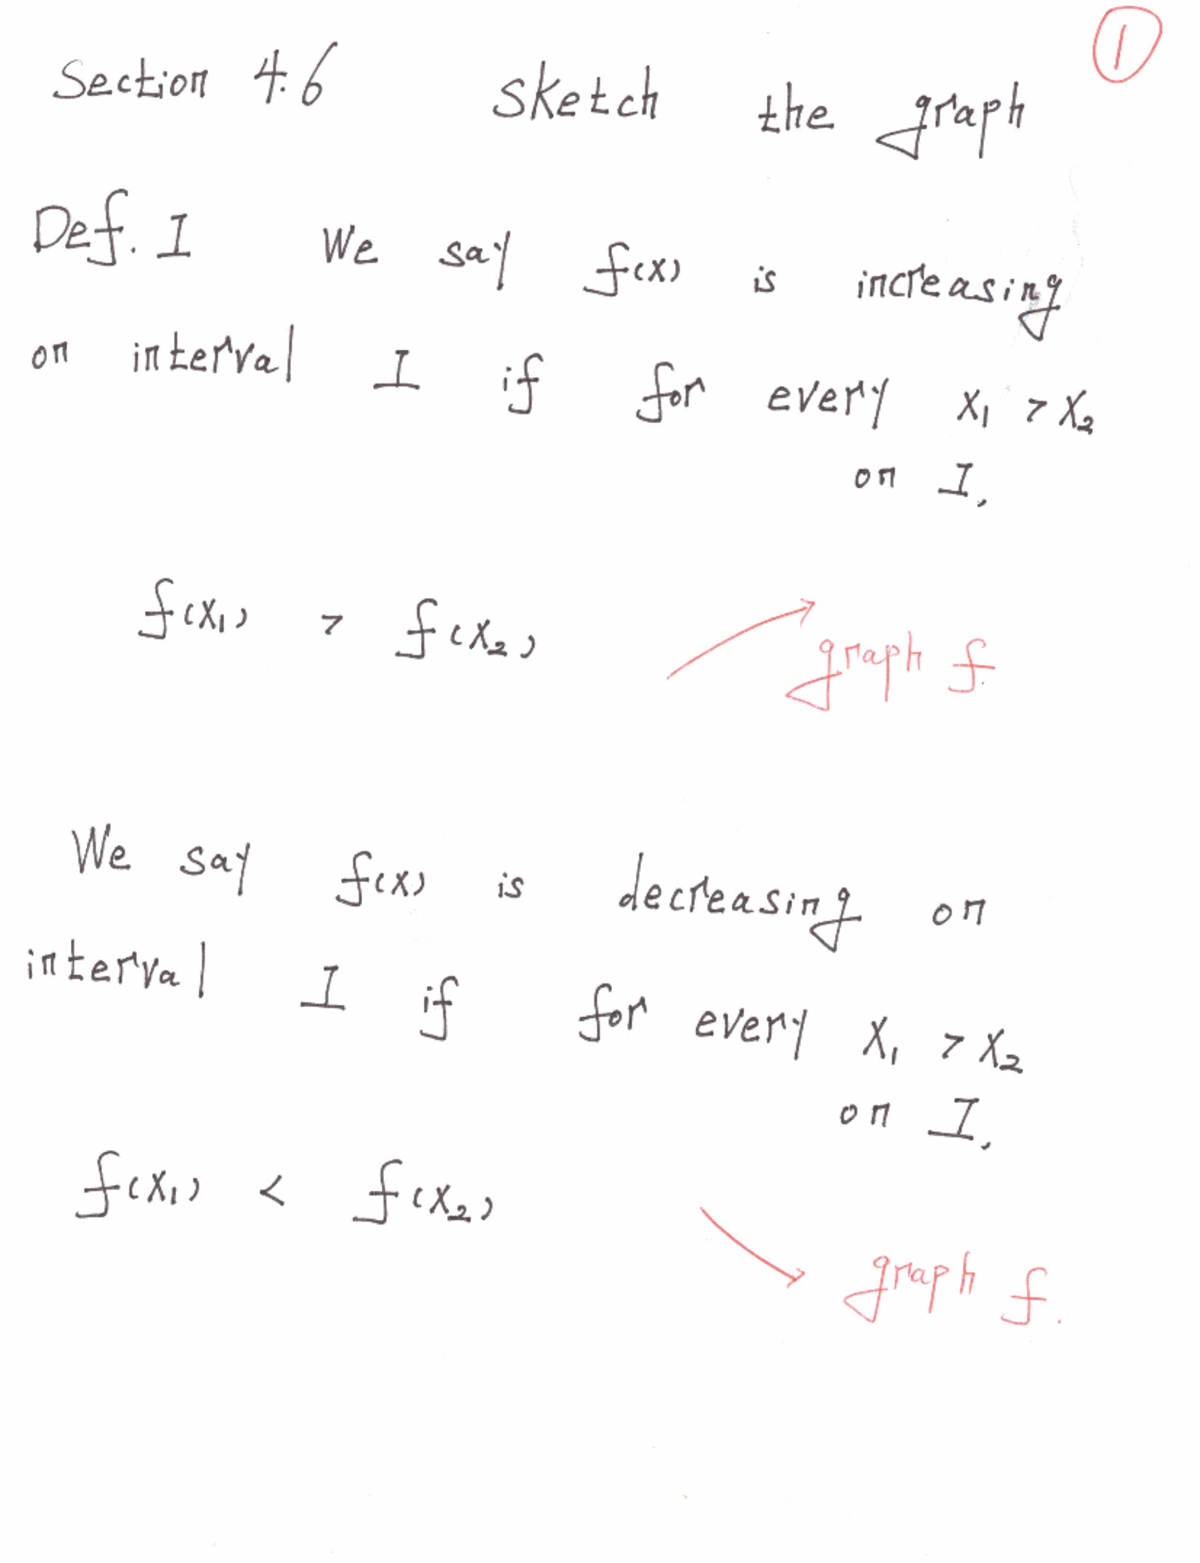 1
Section 4.6 Sketch the graph
Def. I We say f(x) is increasing
on interval I if for every x₁ > x₂
on I,
f(x₁) > f(x₂)
graph f.
We say f(x) is decreasing on
interval I if for every x₁ > x₂
on I,
f(x₁) < f(x₂)
graph f.